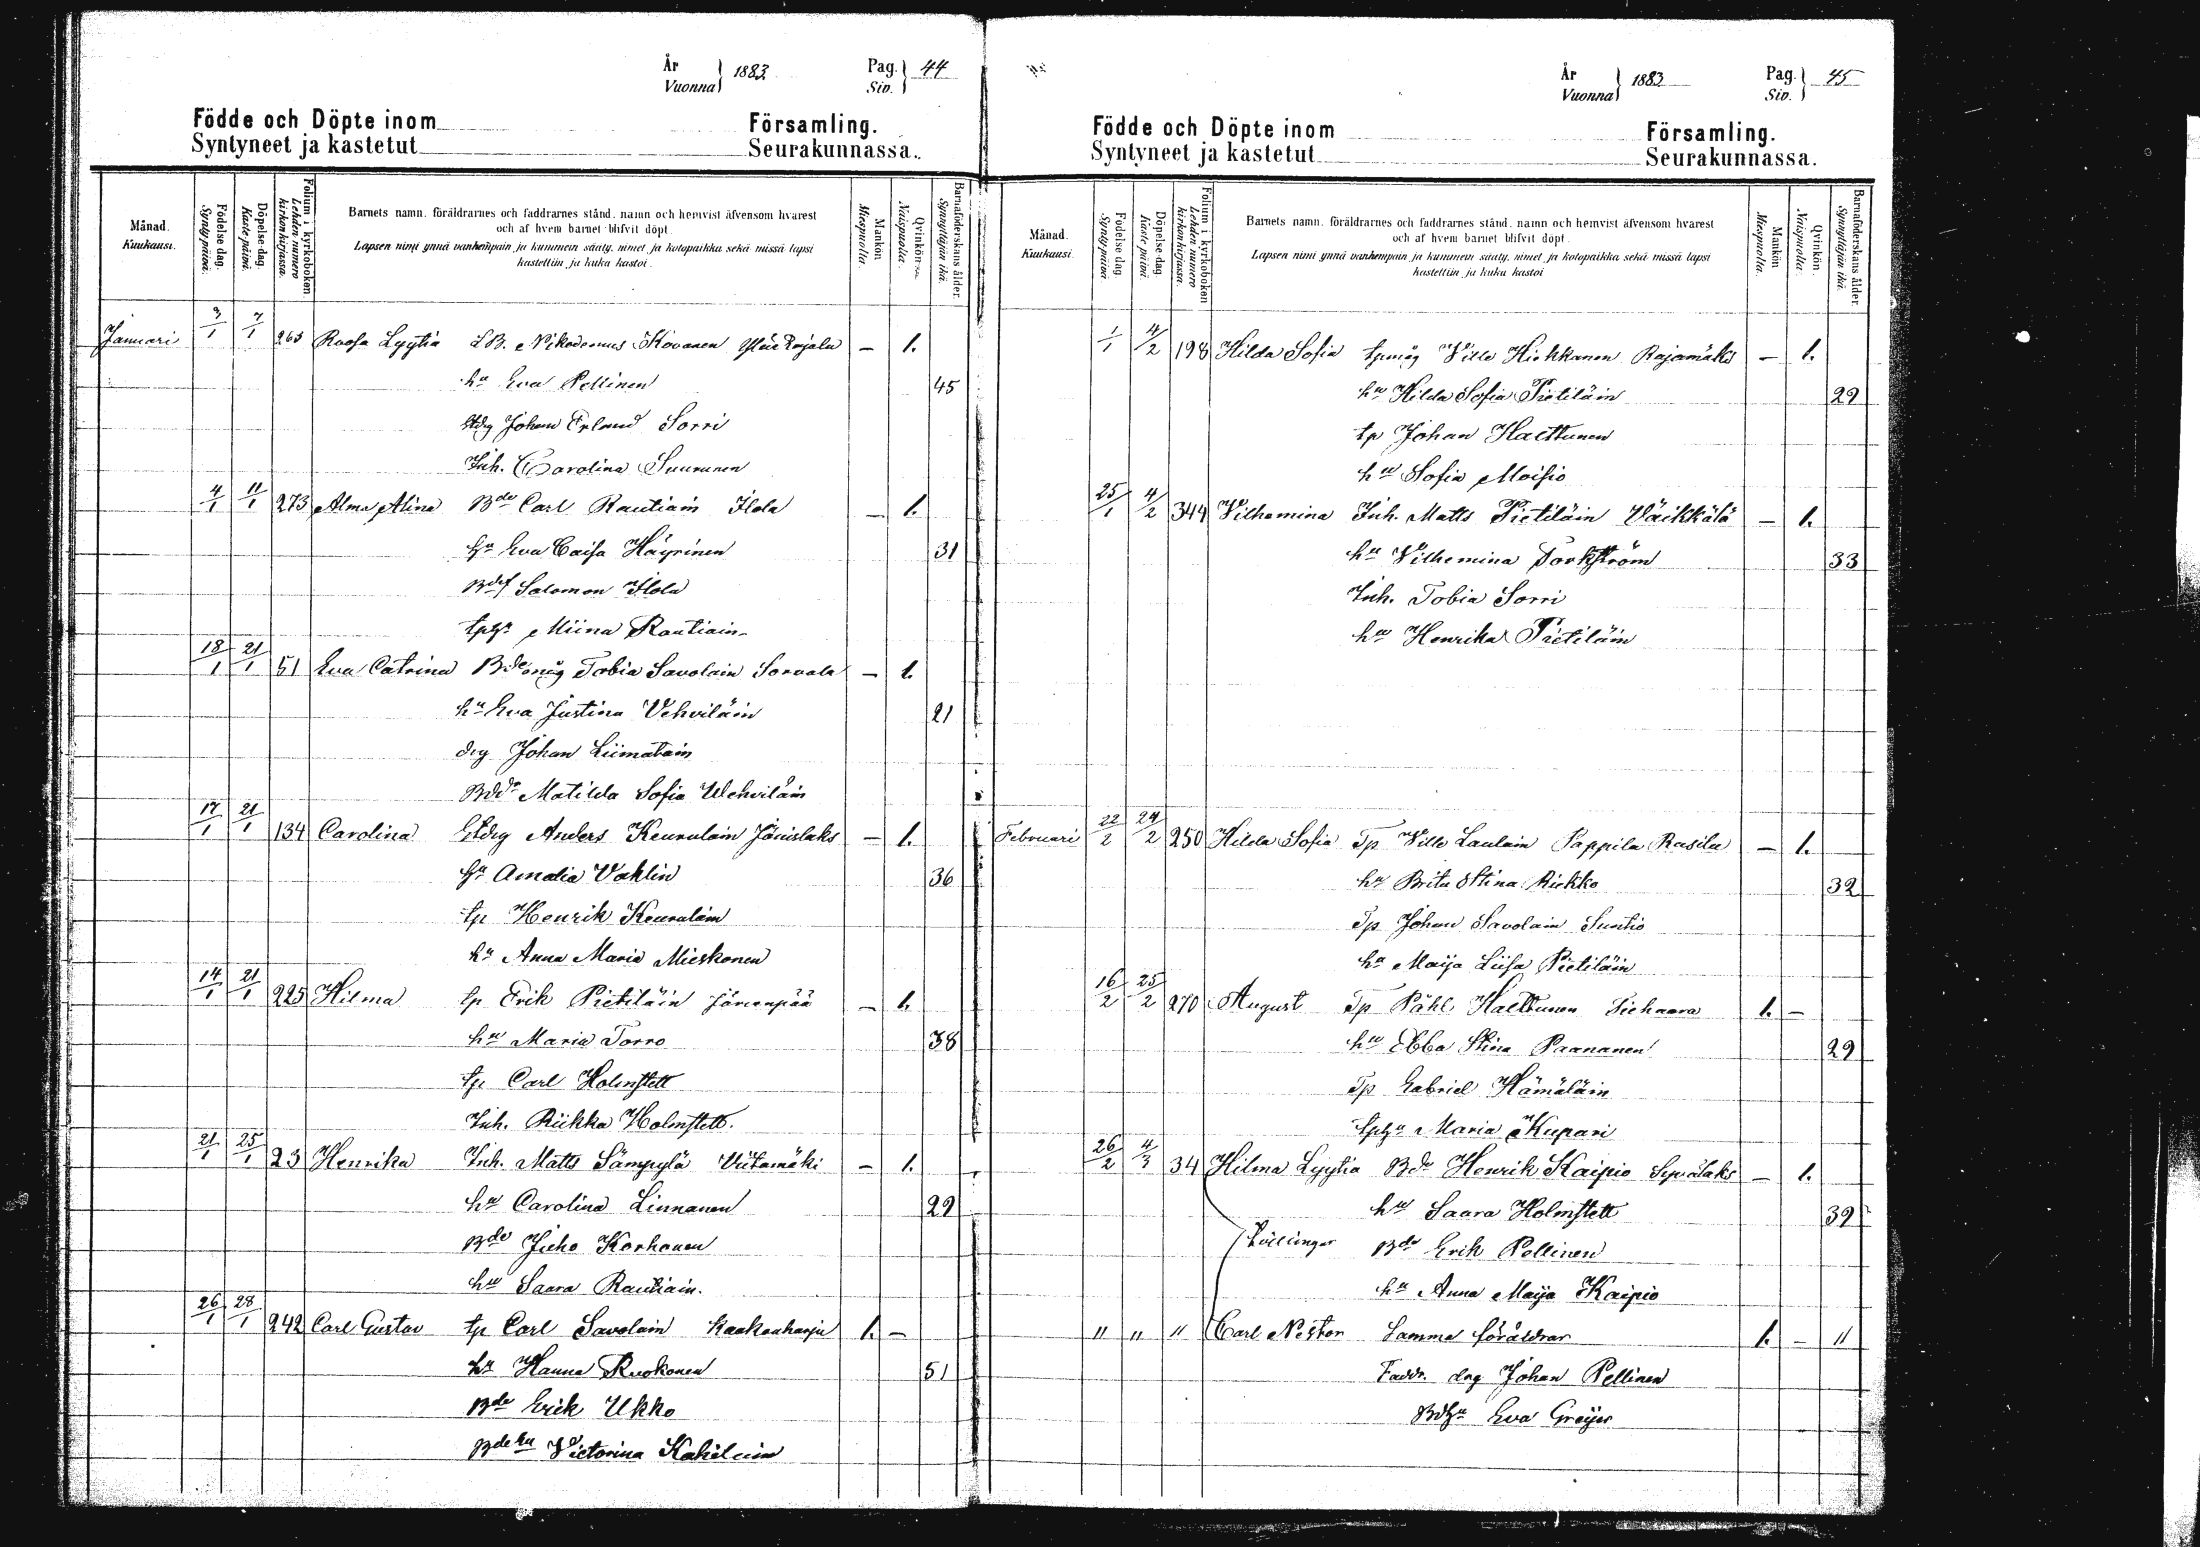 År
Vuonna } 1883
Pag.
Siv. } 44
Födde och Döpte inom Församling.
Syntyneet ja kastetut Seurakunnassa.
Månad.
Kuukausi.
Födelse dag.
Synty päivä.
Döpelse-dag.
Kaste päivä.
Folium i kyrkoboken
Lehden numero kirkonkirjassa.
Barnets namn, föräldrarnes och faddrarnes stånd, namn och hemvist äfvensom hvarest
och af hvem barnet blifvit döpt.
Lapsen nimi ynnä vanhempain ja kummein sääty, nimet ja kotopaikka sekä missä lapsi
kastettiin ja kuka kastoi.
Mankön
Miespuolia.
Qvinkön
Naispuolia.
Barnaföderskans ålder.
Synnyttäjän ikä.
Januari 3/1 7/1 265 Roosa Lyytia LB. Nikodemus Kovanen — 1.
hu Eva Pellinen 45
Johan Erland Sorri
Inh. Carolina Suuronen
4/1 11/1 273 Alma Alina Bde Carl Rautiain Ilola — 1.
hu Eva Caisa Häyrinen 31
Salomon Ilola
Miina Rautiain
18/1 21/1 51 Eva Catrina Bdemåg Tobia Savolain Sorvala — 1.
hu Eva Justina Vehviläin 21
drg Johan Liimatain
Matilda Sofia Wehviläin
17/1 21/1 134 Carolina Anders Keurulain Jänislaks — 1.
hu Amalia Vahlin 36
tp Henrik Keurulain
hu Anna Maria Mieskonen
14/1 21/1 225 Hilma tp Erik Pietiläin Järvenpää — 1.
hu Maria Torro 38
tp Carl Holmstett
Inh. Riikka Holmstett.
21/1 25/1 23 Henrika Inh. Matts Sämpylä Viitamäki — 1.
hu Carolina Linnanen 29
Bde Juho Korhonen
hu Saara Rautiain.
26/1 28/1 242 Carl Gustav tp Carl Savolain Kaakonharju 1. —
hu Hanna Ruokonen 51
Bde Erik Ukko
Bdehu Victorina Kakilain
År
Vuonna } 1883
Pag.
Siv. } 45
Födde och Döpte inom Församling.
Syntyneet ja kastetut Seurakunnassa.
Månad.
Kuukausi.
Födelse dag.
Synty päivä.
Döpelse-dag.
Kaste päivä.
Folium i kyrkoboken
Lehden numero kirkonkirjassa.
Barnets namn, föräldrarnes och faddrarnes stånd, namn och hemvist äfvensom hvarest
och af hvem barnet blifvit döpt.
Lapsen nimi ynnä vanhempain ja kummein sääty, nimet ja kotopaikka sekä missä lapsi
kastettiin ja kuka kastoi
Mankön
Miespuolia.
Qvinkön.
Naispuolia.
Barnaföderskans ålder.
Synnyttäjän ikä.
1/1 4/2 198 Hilda Sofia tpmåg Ville Hiekkanen Rajamäki — 1.
hu Hilda Sofia Pietiläin 29
tp Johan Halttunen
hu Sofia Moisio
25/1 4/2 344 Vilhemina Inh. Matts Pietiläin Väikkälä — 1.
hu Vilhemina Torkström 33
Inh. Tobia Sorri
hu Henrika Pietiläin
Februari 22/2 24/2 250 Hilda Sofia Tp Ville Laulain Pappila Rasila — 1.
hu Brita Stina Riekko 32
Tp Johan Savolain Suntio
hu Maija Liisa Pietiläin
16/2 25/2 270 August Tp Påhl Halttunen Tiehaara 1. —
hu Ebba Stina Paananen 29
Tp Gabriel Hämäläin
Maria Kupari
26/2 4/3 34 Hilma Lyytia Bde Henrik Kaipio Sepälaks — 1.
hu Saara Holmstett 39
Tvillingar Bde Erik Pellinen
hu Anna Maija Kaipio
" " " Carl Nestor Samma föräldrar 1. — "
Faddr. drg Johan Pellinen
Bdhu Eva Greijus